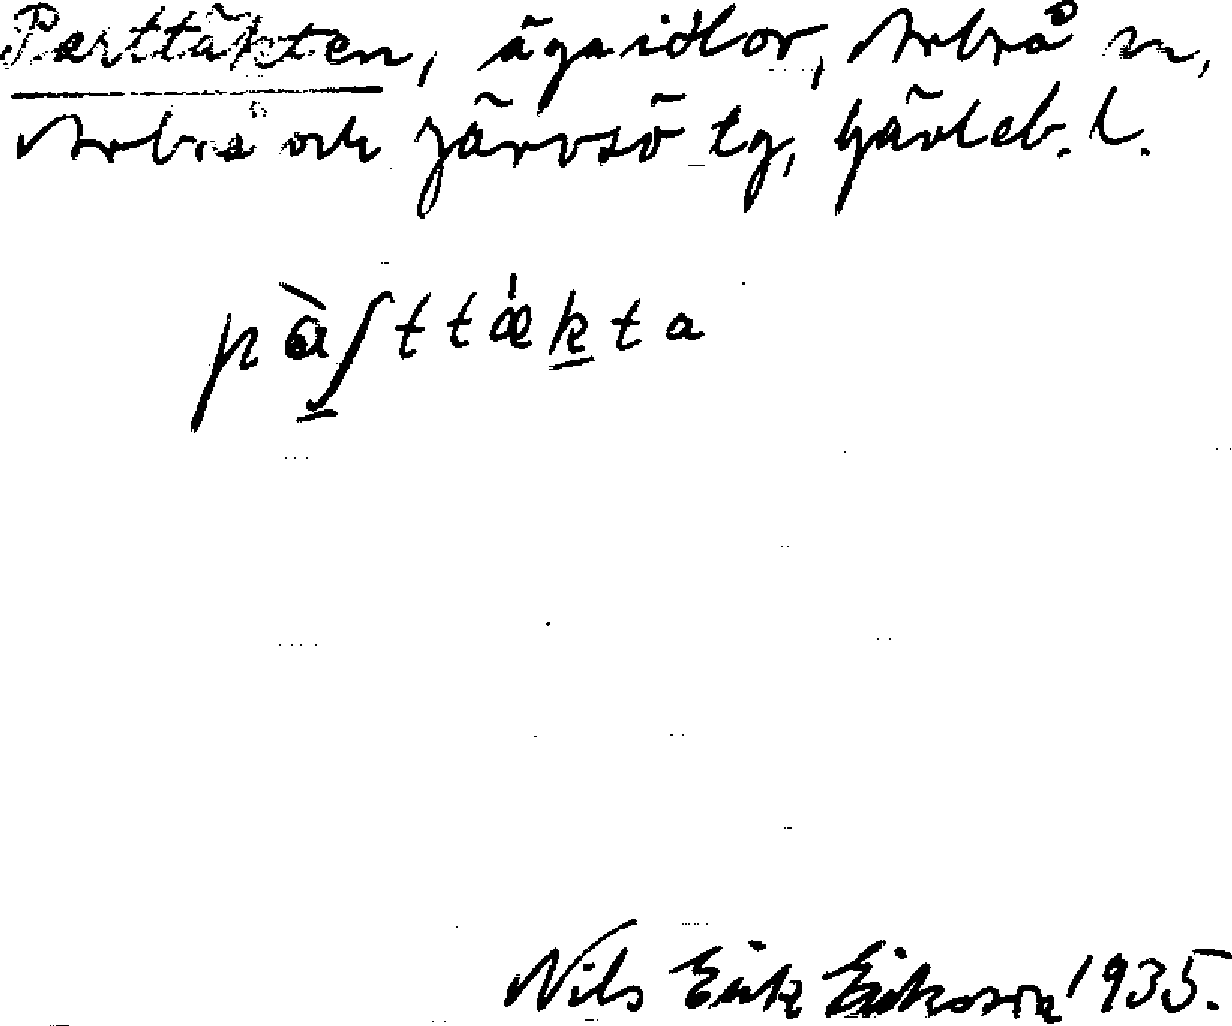 Persttäkten, ägoidlor, Arbrå sn,
Arbrå och Järvsö tg, Gävleb. l.
pàʃttǽkta
Nils Erik Eriksson 1935.